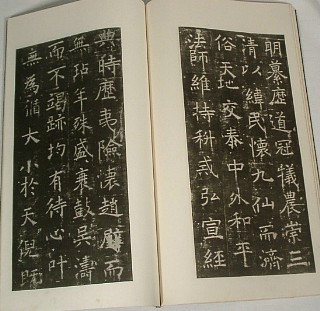 明纂歷道冠犧農崇三
清以緯民懷九仙而濟
俗天地交泰中外和平
法師維持科戒弘宣經
典時歷夷險懷趙璧而
無玷年殊盛衰鼓吳濤
而不竭跡均有待心叶
無為大小於天倪既